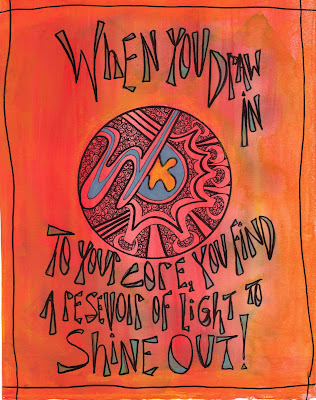 WHEN YOU DRAW
IN
TO YOUR CORE, YOU FIND
A RESEVOIR OF LIGHT TO
SHINE OUT!